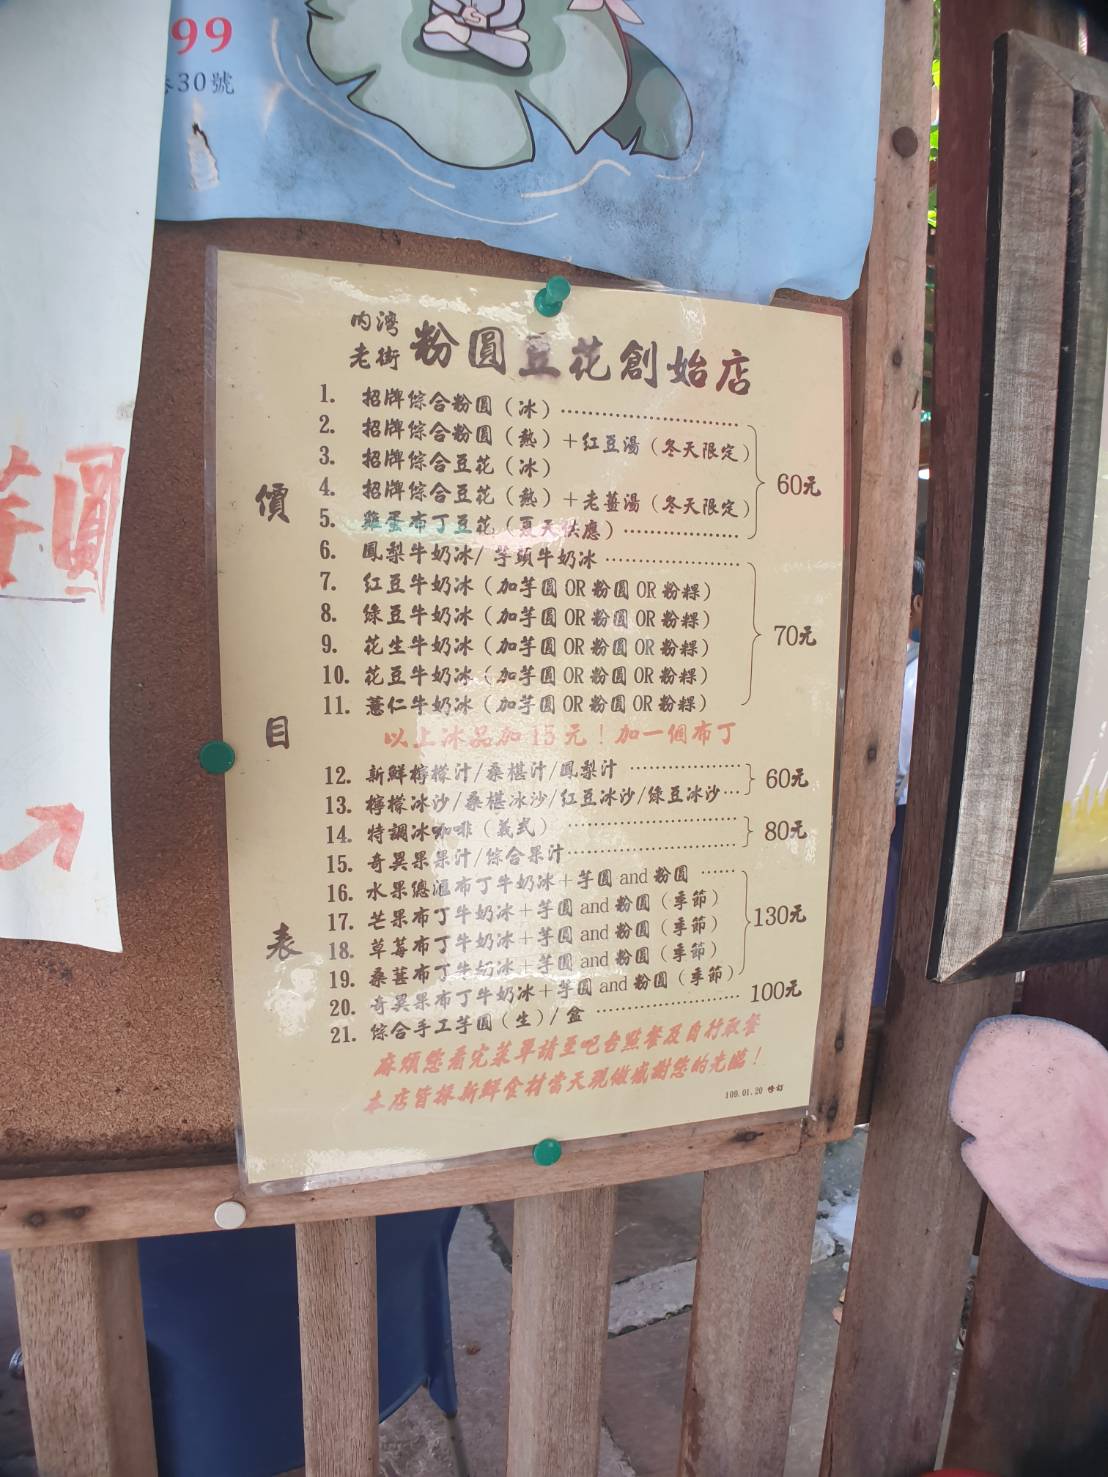 99
巷30號
芋圓
內灣老街 粉圓豆花創始店
價目表
1. 招牌綜合粉圓（冰）
2. 招牌綜合粉圓（熱）＋紅豆湯（冬天限定）
3. 招牌綜合豆花（冰）
4. 招牌綜合豆花（熱）＋老薑湯（冬天限定）
5. 雞蛋布丁豆花（夏天供應）
60元
6. 鳳梨牛奶冰/芋頭牛奶冰
7. 紅豆牛奶冰（加芋圓OR粉圓OR粉粿）
8. 綠豆牛奶冰（加芋圓OR粉圓OR粉粿）
9. 花生牛奶冰（加芋圓OR粉圓OR粉粿）
10. 花豆牛奶冰（加芋圓OR粉圓OR粉粿）
11. 薏仁牛奶冰（加芋圓OR粉圓OR粉粿）
70元
以上冰品加15元！加一個布丁
12. 新鮮檸檬汁/桑椹汁/鳳梨汁
13. 檸檬冰沙/桑椹冰沙/紅豆冰沙/綠豆冰沙
60元
14. 特調冰咖啡（義式）
15. 奇異果果汁/綜合果汁
80元
16. 水果總匯布丁牛奶冰＋芋圓and粉圓
17. 芒果布丁牛奶冰＋芋圓and粉圓（季節）
18. 草莓布丁牛奶冰＋芋圓and粉圓（季節）
19. 桑葚布丁牛奶冰＋芋圓and粉圓（季節）
20. 奇異果布丁牛奶冰＋芋圓and粉圓（季節）
130元
21. 綜合手工芋圓（生）/盒 100元
麻煩您看完菜單請至吧台點餐及自行取餐
本店皆採新鮮食材當天現做感謝您的光臨！
109.01.20 修訂